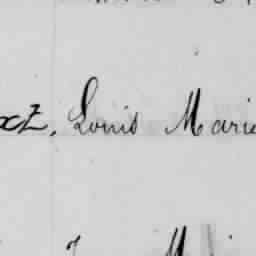 xZ, Louis Marie